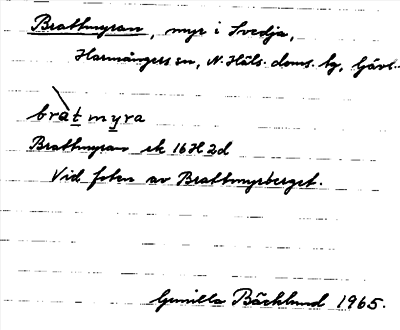 Brattmyran, myr i Svedja,
Harmångers sn, N. Häls. doms. tg, Gävl..
bràt myra
Brattmyran ek 16H2d
Vid foten av Brattmyrberget.
Gunilla Bäcklund 1965.